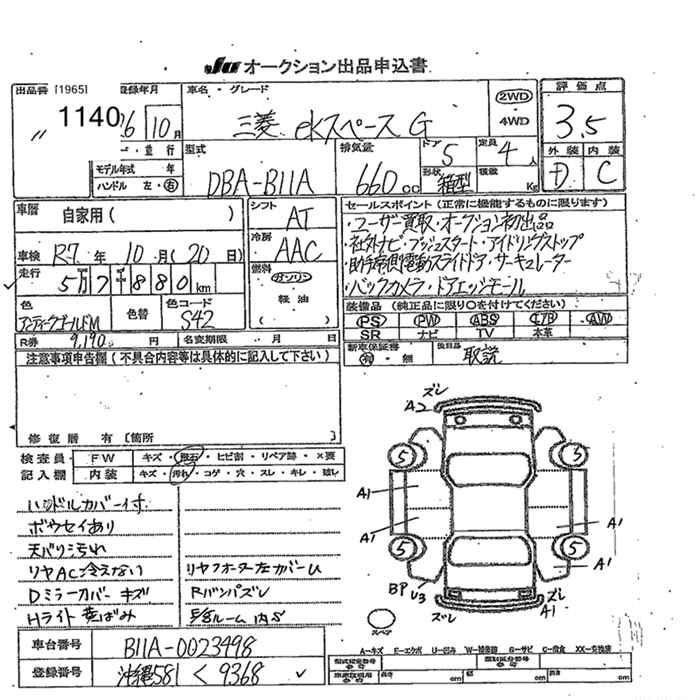 JU オークション出品申込書
出品番 [1965] 登録年月 車名・グレード 評価点
〃 1140 26 10月 三菱 ekスペース G 2WD 4WD 3.5
型式 排気量 ドア 5 定員 4人 外装 内装
モデル年式 年 DBA-B11A 660cc 形状 箱型 積載 Kg D C
ハンドル 左・右
車歴 自家用( ) シフト AT セールスポイント(正常に機能するものに限ります)
・ユーザー買取・オークション初出品
車検 R-7年 10月(20日) 冷房 AAC ・社外ナビ・プッシュスタート・アイドリングストップ
走行 5万7千880km 燃料 ガソリン 軽油 ( ) ・助手席側電動スライドドア・サーキュレーター
・バックカメラ・ドアエッジモール
色 アンティークゴールドM 色替 色コード S42 装備品(純正品に限り○を付けてください)
PS PW ABS エアB AW
SR ナビ TV 本革
R券 9,190円 名変期限 月 日 新車保証書 有・無 後日品 取説
注意事項申告欄(不具合内容等は具体的に記入して下さい)
修復歴 有 [箇所
検査員 FW キズ・飛石・ヒビ割・リペア跡・×要
記入欄 内装 キズ・汚れ・コゲ・穴・スレ・キレ・破レ
ハンドルカバー付
ボウセイあり
天バリ汚れ
リヤAC冷えない リヤクオーター左カバーU
Dミラーカバーキズ RバンパズレHライト黄ばみ
ズレ
A2
5 5
A1
A1 A1 A1
5 5
A1
BP U3 ズレ ズレ A1
スペア
車台番号 B11A-0023498
登録番号 沖縄581 く 9368
A-キズ E-エクボ U-凹み G-サビ C-腐食 XX-交換済
長さ cm cm cm